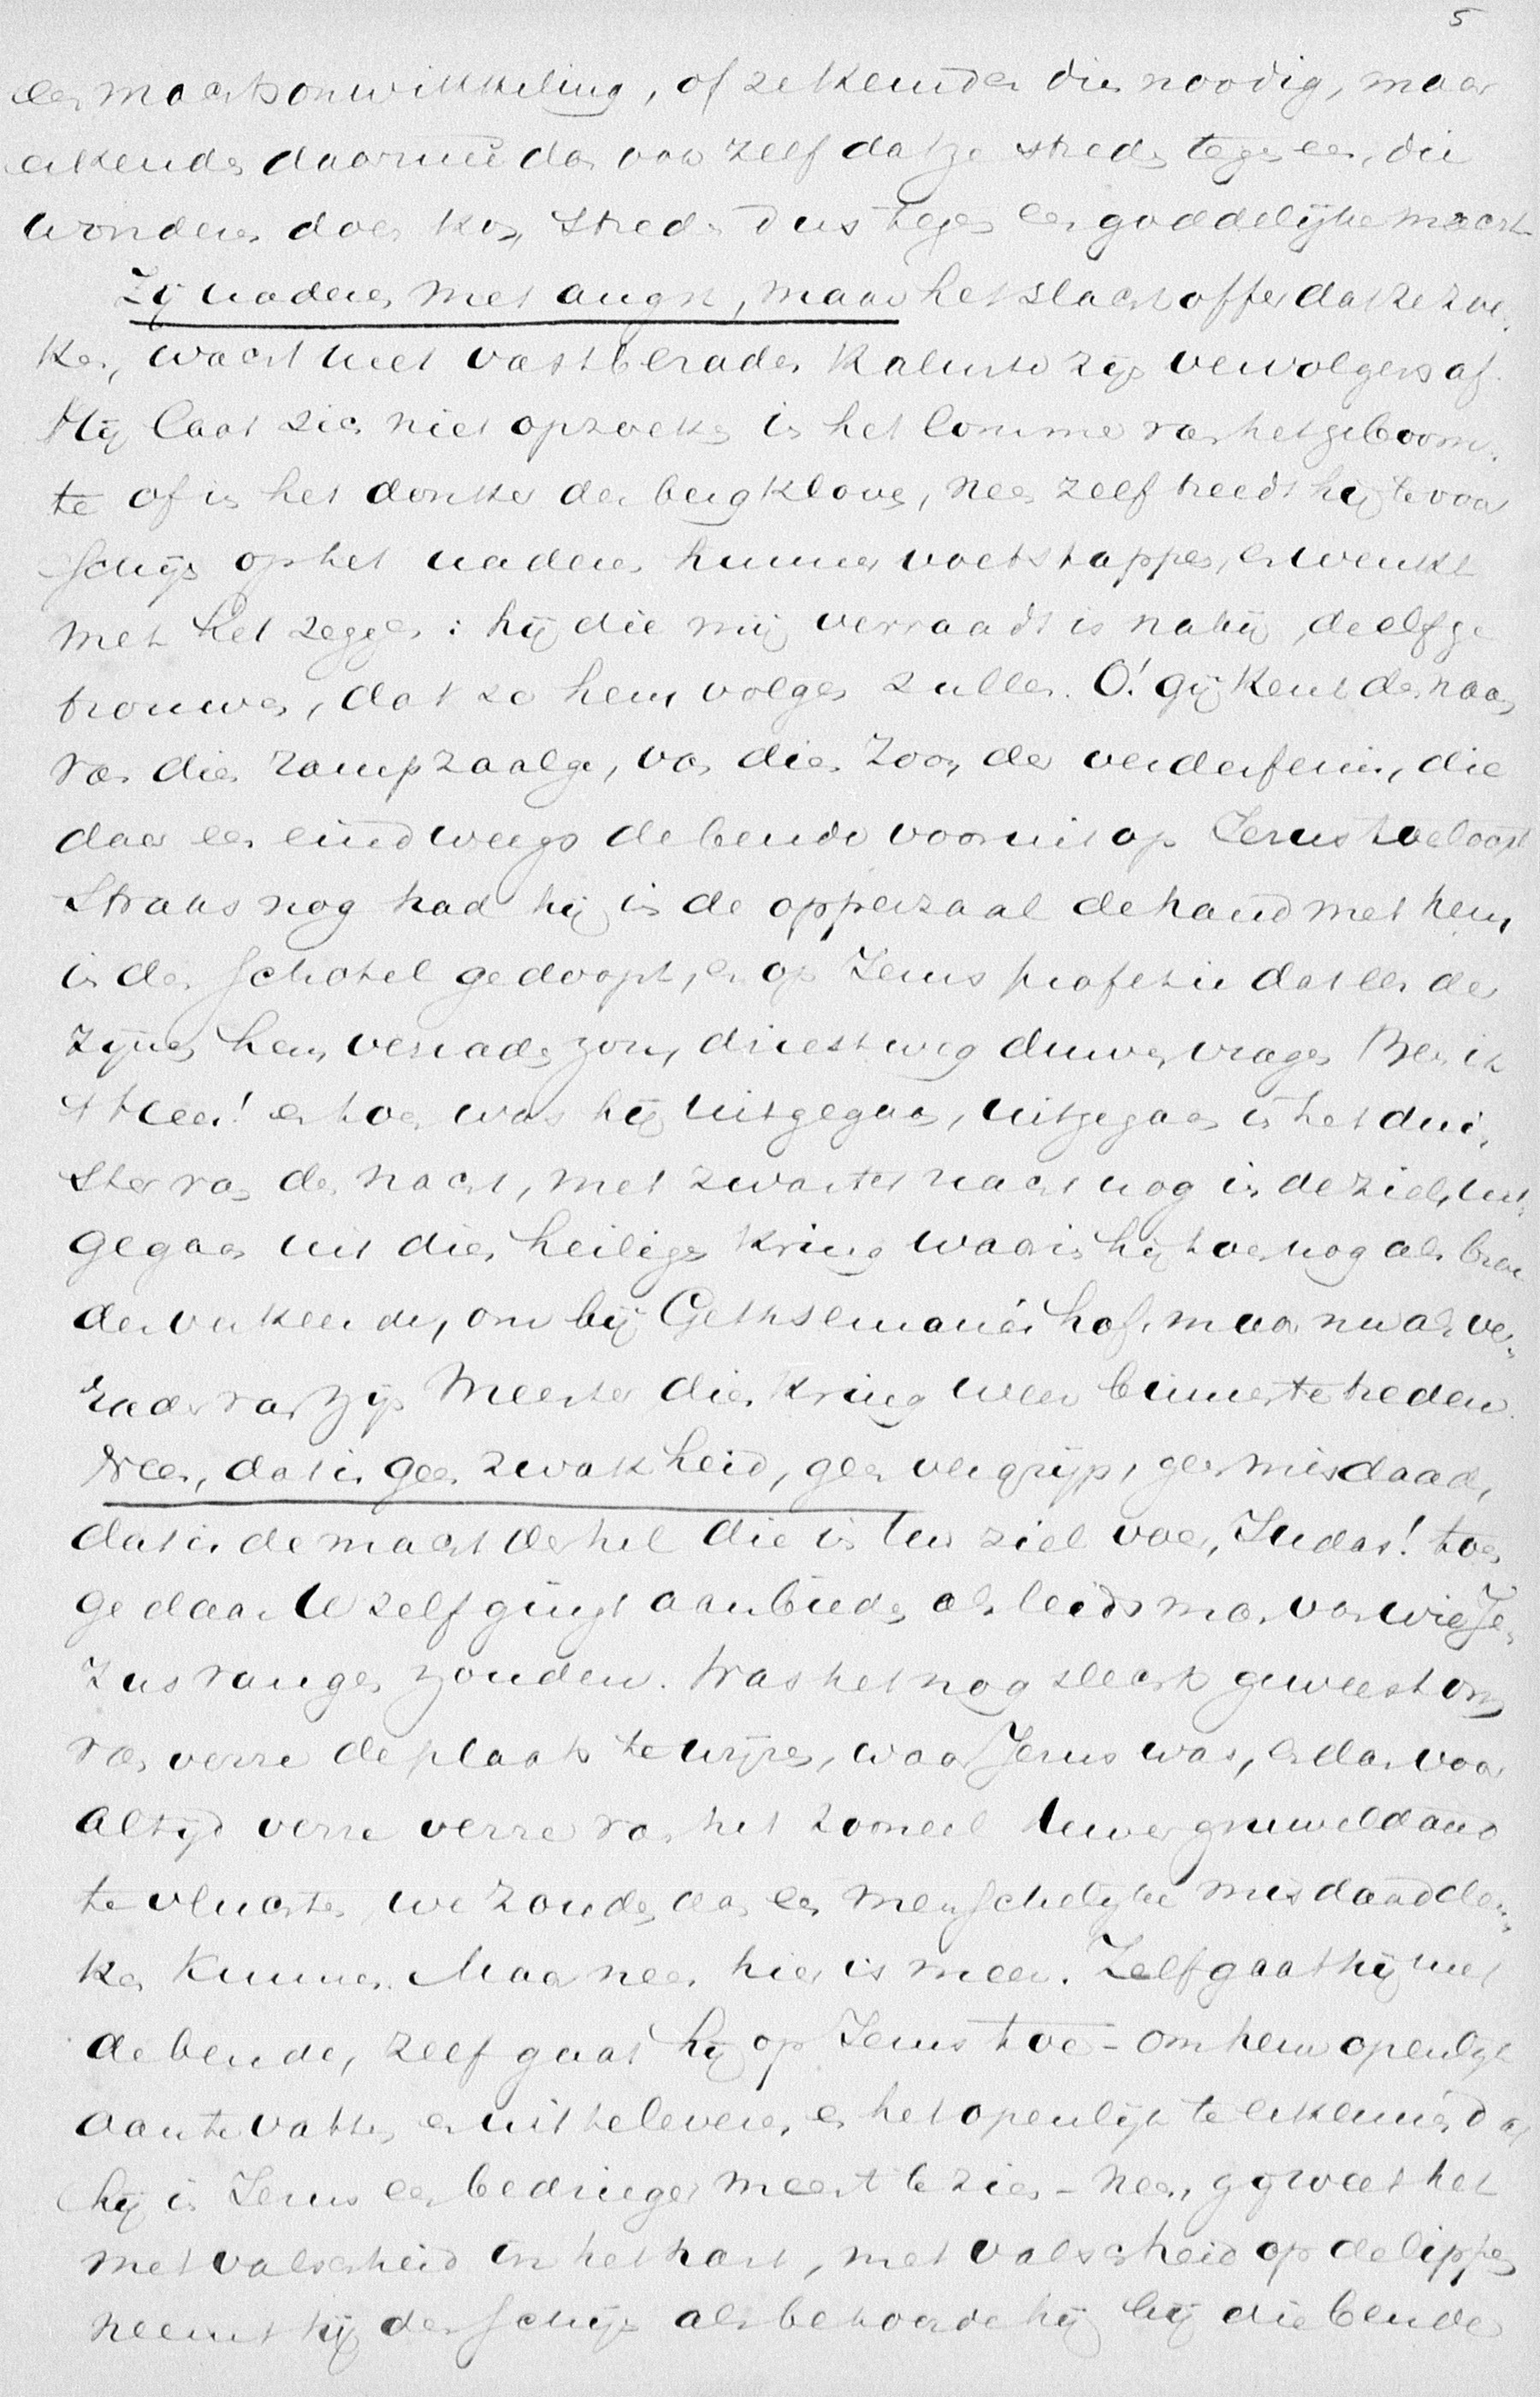 5
een machtsonwikkeling, of ze keurden die noodig, maar
erkenden daarmeê dan ook zelf dat ze streden tegen een, die
wonderen doen kon, streden dus tegen een goddelijke macht
Zij naderen met angst, maar het slachtoffer dat ze zoe-
ken, wacht met vastberaden kalmte zijn vervolgers af.
Hij laat zich niet opzoeken in het lommer van het geboom-
te of in het donker der bergkloven, neen zelf treedt hij te voor
schijn op het naderen hunner voetstappen, en wenkt
met het zeggen: hij die mij verraadt is nabij, de elf ge
trouwen, dat ze hem volgen zullen. O! gij kent den naam
van dien rampzaalge, van dien Zoon der verderfenis, die
daar een eindweegs de bende vooruit op Jezus toeloopt
Straks nog had hij in de opperzaal de hand met hem
in den schotel gedoopt, en op Jezus profetie dat een der
zijnen hem verraden zou, driestweg durven vragen Ben ik
't Heer! en toen was hij uitgegaan, uitgegaan in het dui-
ster van den nacht, met zwarter nacht nog in de ziel, uit-
gegaan uit dien heiligen kring waarin hij toen nog als broe
der verkeerde, om bij Gethsemané's hof, maar nu als ver-
rader van zijn Meester dien kring weer binnen te treden.
Neen, dat is geen zwakheid, geen vergrijp, geen misdaad,
dat is de macht der hel die in uw ziel voer, Judas! toen
ge daar U zelf gingt aanbieden als leidsman van wie Je-
zus vangen zouden. Was het nog slechts geweest om
van verre de plaats te wijzen, waar Jezus was, en dan voor
altijd verre verre van het tooneel uwer gruweldaad
te vluchten, we zouden aan een menschelijke misdaad den-
ken kunnen. Maar neen hier is meer. Zelf gaat hij met
de bende, zelf gaat hij op Jezus toe - om hem openlijk
aan te vatten en uit te leveren, en het openlijk te erkennen dat
hij in Jezus een bedrieger meent te zien - neen, gij weet het
met valschheid in het hart, met valschheid op de lippen
neemt hij den schijn als behoorde hij bij die bende